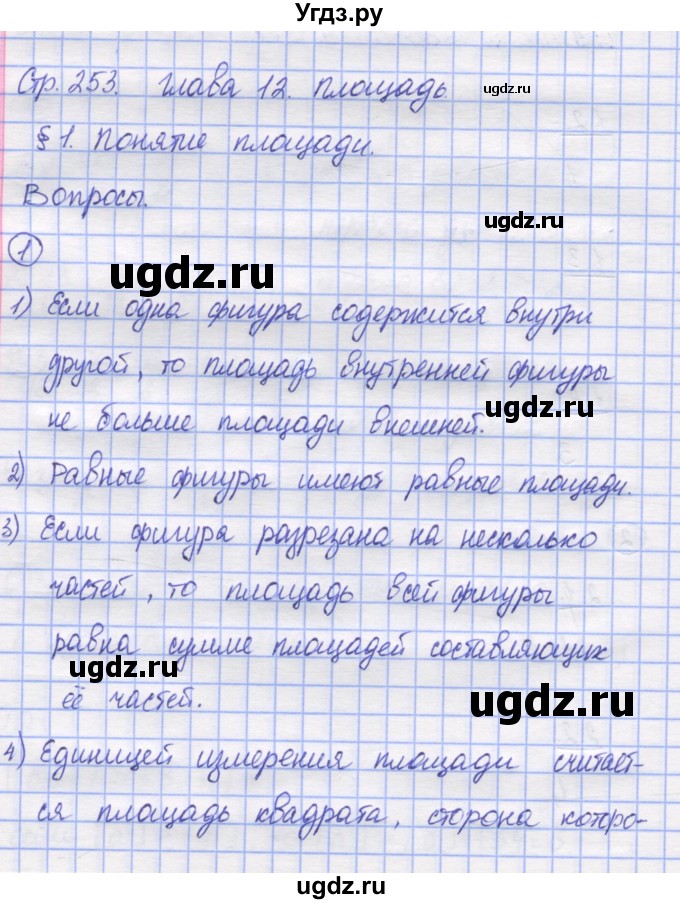 Угдз.ру
Стр. 253. Глава 12. Площадь.
ugdz.ru
§ 1. Понятие площади.
Вопросы.
ugdz.ru
1
ugdz.ru
1) Если одна фигура содержится внутри
другой, то площадь внутренней фигуры
ugdz.ru
не больше площади внешней.
2) Равные фигуры имеют равные площади.
3) Если фигура разрезана на несколько
частей, то площадь всей фигуры
равна сумме площадей составляющих
ugdz.ru
её частей.
ugdz.ru
4) Единицей измерения площади считает-
ся площадь квадрата, сторона кото-
ugdz.ru